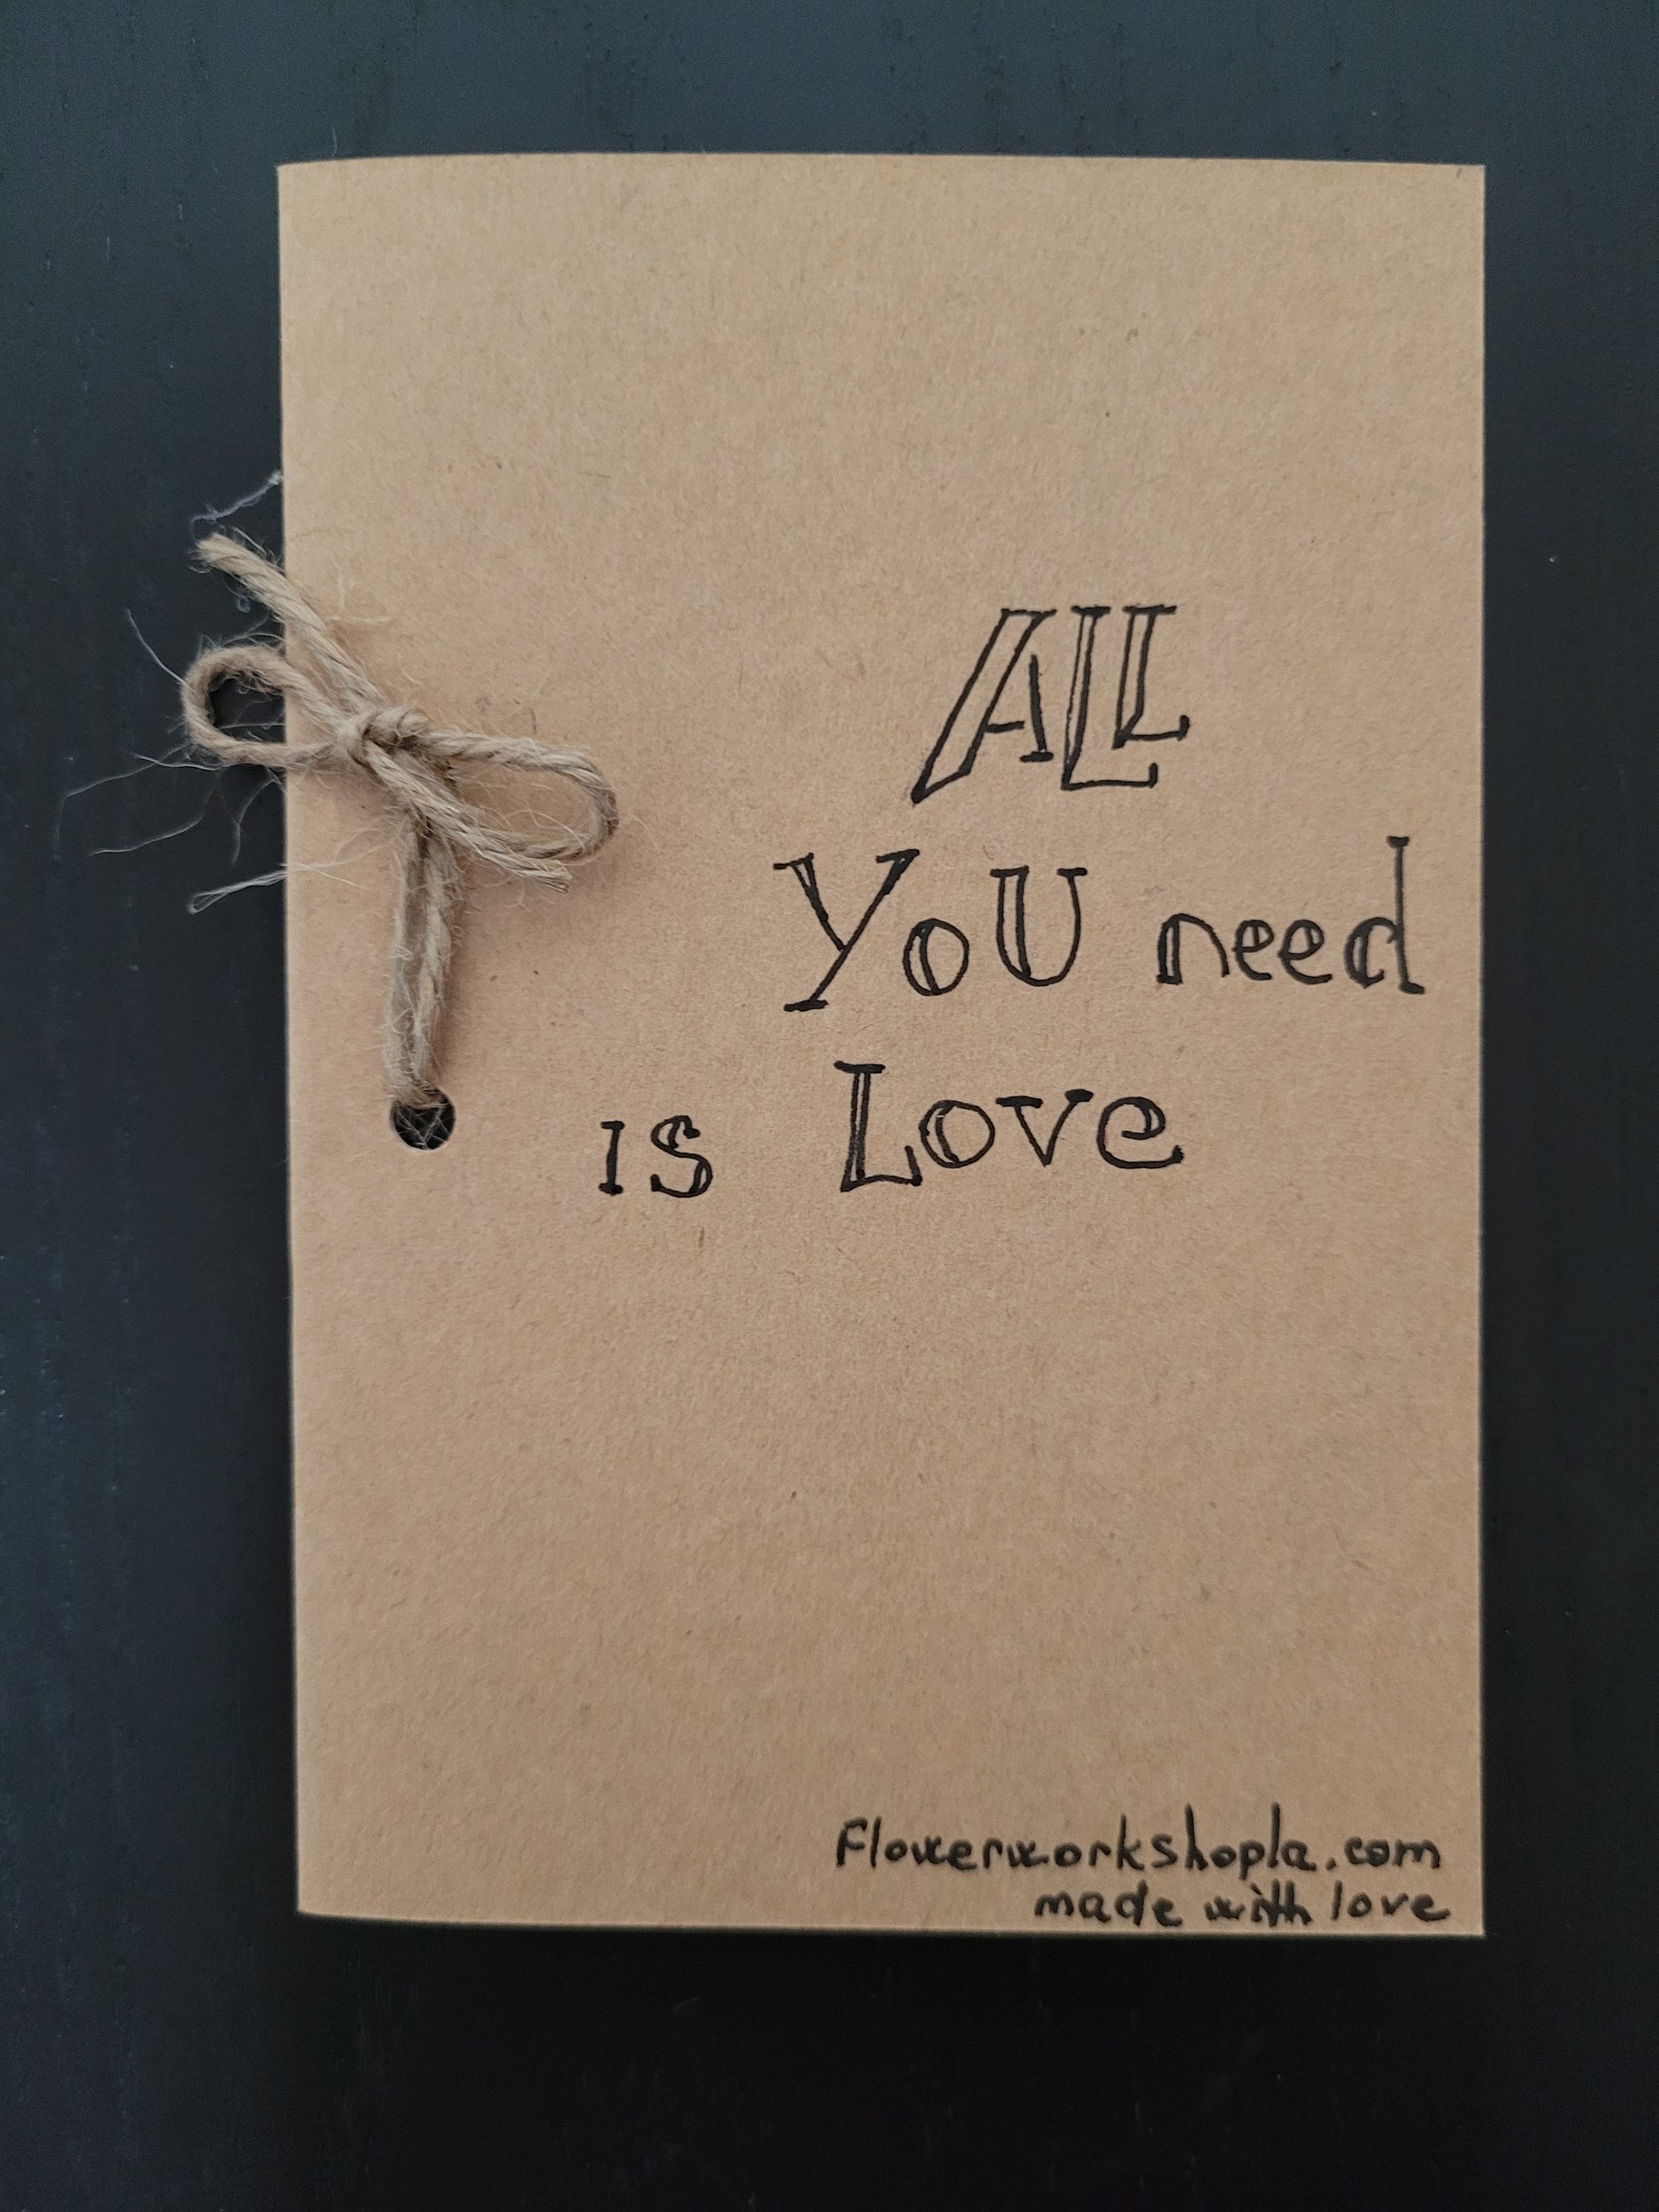 ALL
YoU need
is Love
Flowerworkshopla.com
made with love